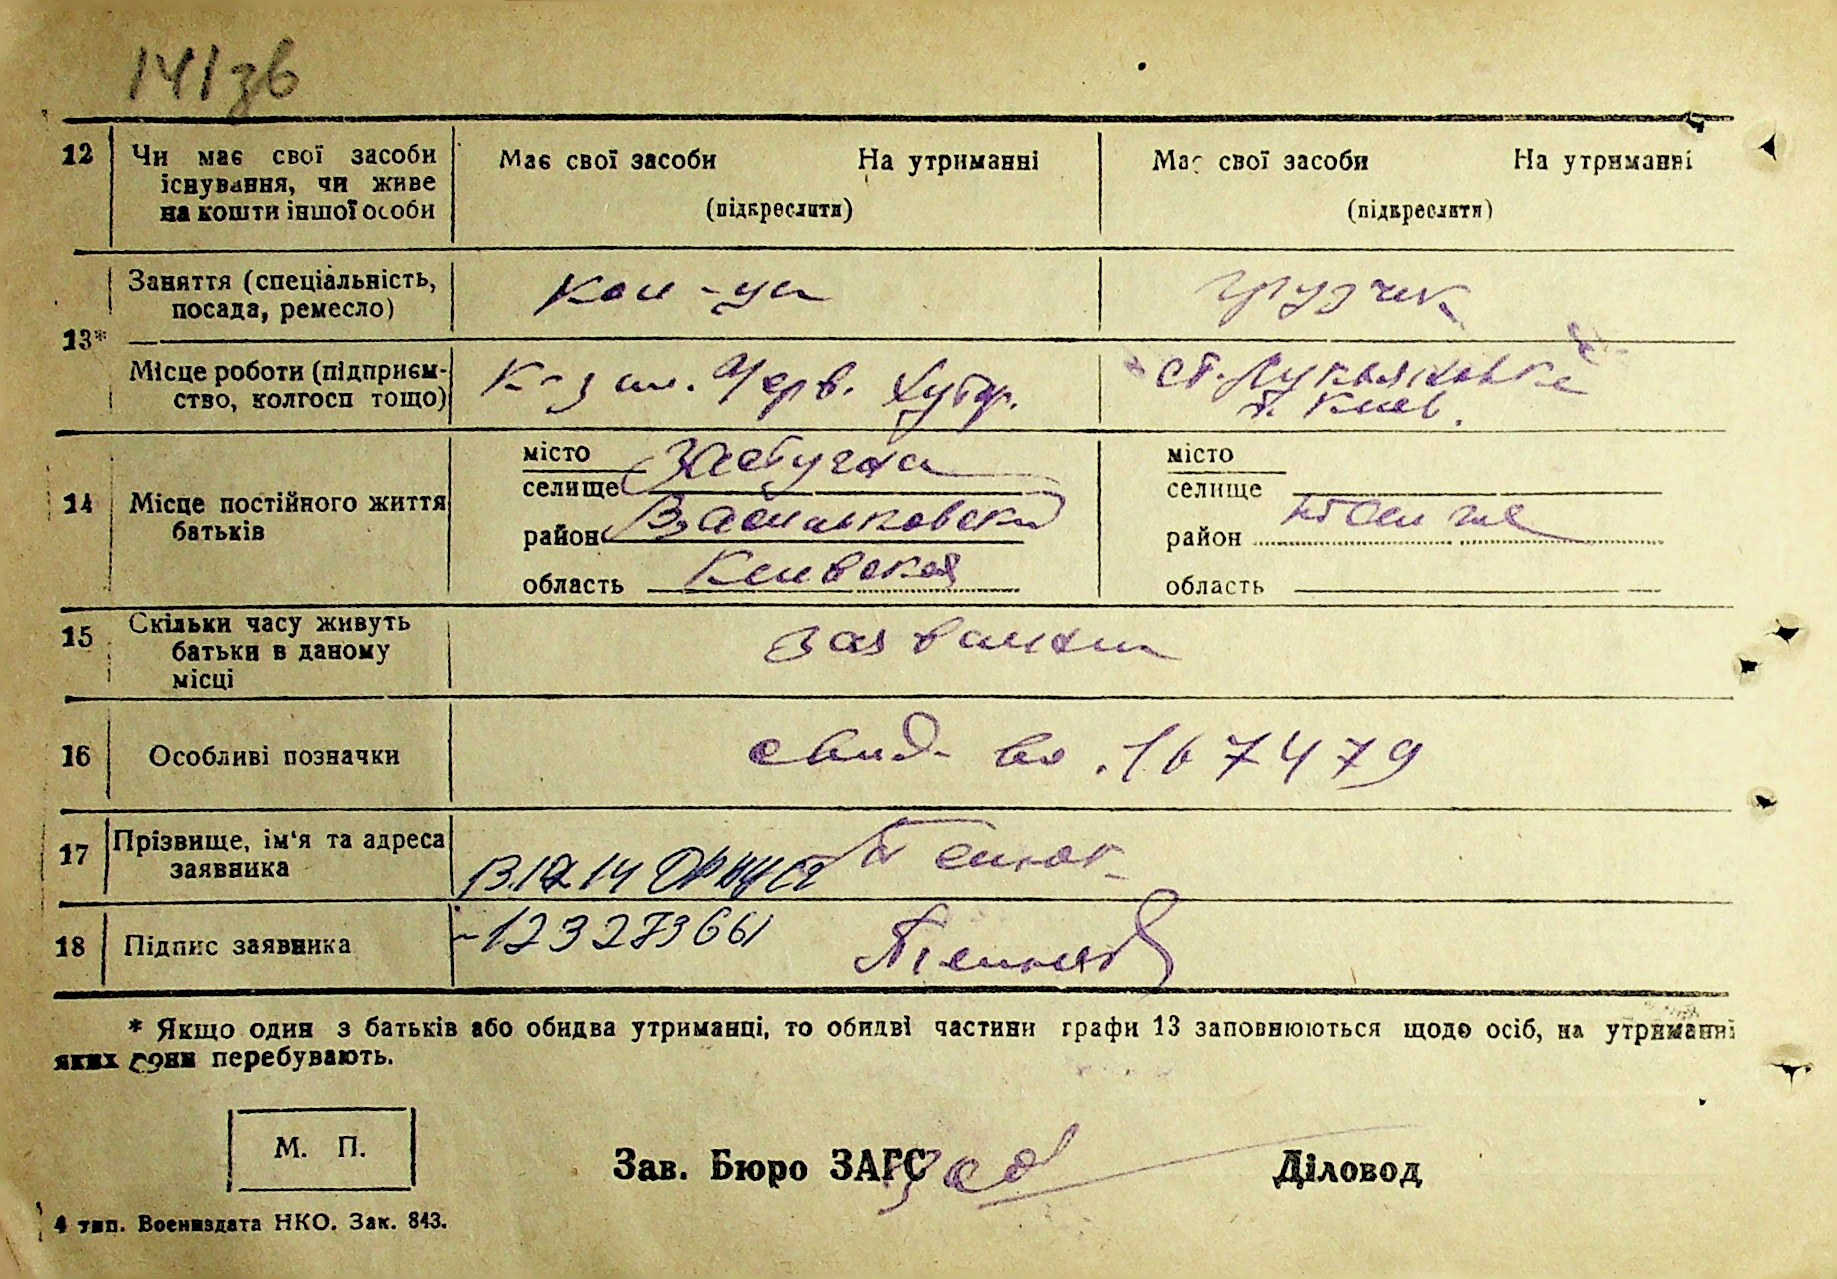 141зв
12 Чи має свої засоби існування, чи живе на кошти іншої особи
Має свої засоби На утриманні
(підкреслити)
Має свої засоби На утриманні
(підкреслити)
13* Заняття (спеціальність, посада, ремесло)
грузчик
Місце роботи (підприємство, колгосп тощо)
К-з им. Черв. Хутор.
ст. Лукьяновка
г. Киев.
14 Місце постійного життя батьків
місто
селище Застугна
район Васильковский
область Киевская
місто
селище
район
область
15 Скільки часу живуть батьки в даному місці
16 Особливі позначки
свид-во. 167479
17 Прізвище, ім'я та адреса заявника
18 Підпис заявника
-123273661
* Якщо один з батьків або обидва утриманці, то обидві частини графи 13 заповнюються щодо осіб, на утриманні
яких вони перебувають.
М. П.
Зав. Бюро ЗАГС
Діловод
4 тип. Воениздата НКО. Зак. 843.